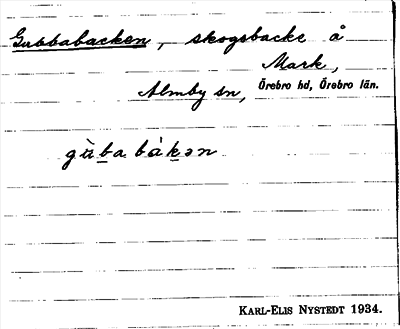 Gubbabacken, skogsbacke å
Mark,
Almby sn, Örebro hd, Örebro län.
gùba bàkən
KARL-ELIS NYSTEDT 1934.